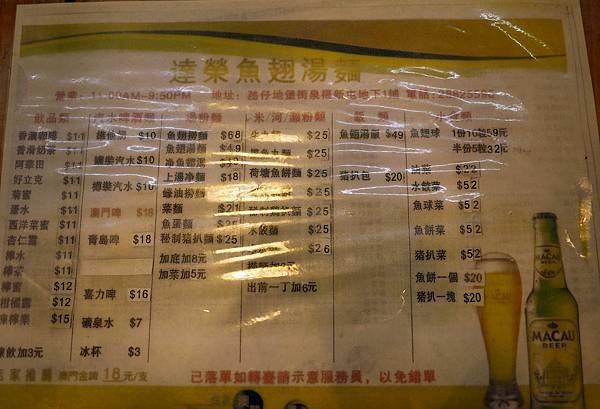 達榮魚翅湯麵
營業：11:00AM-9:50PM 地址：氹仔地堡街泉穩新屯地下1舖 電話：
飲品類
香濃咖啡 $11
香滑奶茶 $11
阿華田 $11
好立克 $11
菊蜜 $11
蛋水 $11
西洋菜蜜 $11
杏仁霜 $11
檸水 $11
檸茶 $11
檸蜜 $12
柑橘露 $12
凍檸樂 $15
凍飲加3元
維他奶 $10
罐裝汽水 $10
樽裝汽水 $10
澳門啤 $18
青島啤 $18
喜力啤 $16
礦泉水 $7
冰杯 $3
湯粉麵
魚翅撈麵 $68
魚翅湯麵 $49
淨魚翅湯
上湯淨麵 $18
蠔油撈麵
菜麵 $21
魚蛋麵 $25
秘制豬扒麵 $25
加底加8元
加菜加5元
米/河/瀨粉類
$25
$25
荷塘魚餅麵 $25
秘制豬扒麵 $25
水餃麵 $25
$26
出前一丁加6元
魚翅湯飯 $49
豬扒包 $20
魚翅球 1份10粒59元
半份5粒32元
油菜 $22
水餃菜 $52
魚球菜 $52
魚餅菜 $52
豬扒菜 $52
魚餅一個 $20
豬扒一塊 $20
MACAU
BEER
MACAU
BEER
店家推薦 澳門金啤 18元/支
已落單如轉臺請示意服務員，以免錯單